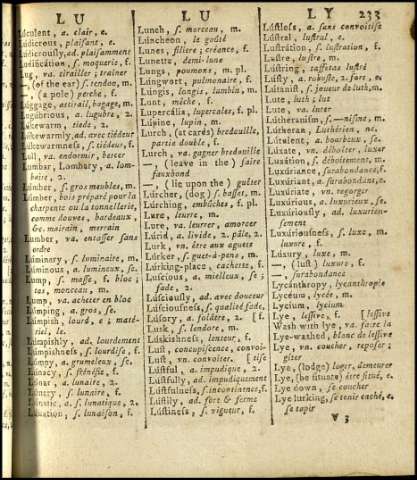 LU
LU
LY
233
Lúculent, a. clair, e.
Lúdicrous, plaisant, e.
Lúdicrously, ad. plaisamment
Ludification, s. moquerie, f.
Lug, va. tirailler; trainer
— (of the ear) s. tendon, m.
—, (a pole) perche, f.
Lúggage, attirail, bagage, m.
Lugúbrious, a. lugubre, 2.
Lúkewarm, tiede, 2.
Lúkewarmly, ad. avec tiédeur
Lúkewarmness, s. tiédeur, f.
Lull, va. endormir, bercer
Lúmbar, Lombary, a. lom-
baire, 2.
Lúmber, s. gros meubles, m.
Lúmber, bois préparé pour la
charpente ou la tonnellerie,
comme douves, bardeaux,
&c. mairain, merrain
Lúmber, va. entasser sans
ordre
Lúminary, s. luminaire, m.
Lúminous, a. lumineux, se.
Lump, s. masse, f. bloc;
tas, monceau, m.
Lump, va. acheter en bloc
Lúmping, a. gros, se.
Lúmpish, lourd, e; maté-
riel, le.
Lúmpishly, ad. lourdement
Lúmpishness, s. lourdise, f.
Lúmpy, a. grumeleux, se.
Lúnacy, s. frénésie, f.
Lúnar, a. lunaire, 2.
Lúnary, s. lunaire, f.
Lúnatic, a. s. lunatique, 2.
Lunátion, s. lunaison, f.
Lunch, s. morceau, m.
Lúncheon, le goûté
Lunes, filiere; créance, f.
Lunette, demi-lune
Lungs, poumons, m. pl.
Lúngwort, pulmonaire, f.
Lúngis, longis, lambin, m.
Lunt, mêche, f.
Lupercália, lupercales, f. pl.
Lúpine, lupin, m.
Lurch, (at cards) bredouille,
partie double, f.
Lurch, va. gagner bredouille
—, (leave in the) faire
fauxbond
—, (lie upon the) guêter
Lúrcher, (dog) s. basset, m.
Lúrching, embûches, f. pl.
Lure, leurre, m.
Lure, va. leurrer, amorcer
Lúrid, a. livide, 2. pâle, 2.
Lurk, va. être aux aguets
Lúrker, s. guet-à-pens, m.
Lúrking-place, cachette, f.
Lúscious, a. mielleux, se;
fade, 2.
Lúsciously, ad. avec douceur
Lúsciousness, s. qualité fade,
Lúsory, a. folâtre, 2. [f.
Lusk, s. lendore, m.
Lúskishness, lenteur, f.
Lust, concupiscence, convoi-
Lust, vn. convoiter. [tise
Lústful, a. impudique, 2.
Lústfully, ad. impudiquement
Lústfulness, s. incontinence, f.
Lústily, ad. fort & ferme
Lústiness, s. vigueur, f.
Lústless, a. sans convoitise
Lústral, lustral, e.
Lustrátion, s. lustration, f.
Lustre, lustre, m.
Lústring, taffetas lustré
Lústy, a. robuste, 2. fort, e.
Lútanist, s. joueur de luth, m.
Lute, luth; lut
Lute, va. luter
Lútheranism, s. —nisme, m.
Lútheran, Luthérien, ne.
Lútulent, a. bourbeux, se.
Lúxate, va. déboîter, luxer
Luxátion, s. déboîtement, m.
Luxúriance, surabondance, f.
Luxúriant, a. surabondant, e.
Luxúriate, vn. regorger
Luxúrious, a. luxurieux, se.
Luxúriously, ad. luxurieu-
sement
Luxúriousness, s. luxe, m.
luxure, f.
Lúxury, luxe, m.
—, (lust) luxure, f.
—, surabondance
Lycánthropy, lycanthropie
Lycéum, lycée, m.
Lycium, lycium.
Lye, lessive, f. [lessive
Wash with lye, va. faire la
Lye-washed, blanc de lessive
Lye, vn. coucher, reposer;
gîter
Lye, (lodge) loger, demeurer
Lye, (be situate) être situé, e.
Lye down, se coucher
Lye lurking, se tenir caché, e.
se tapir
V 3